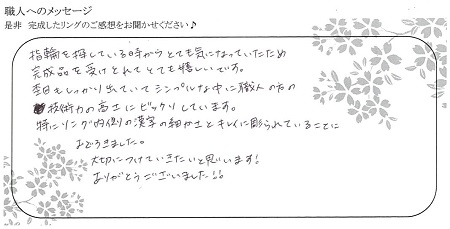 職人へのメッセージ
是非 完成したリングのご感想をお聞かせください♪
指輪を探している時からとても気になっていたため
完成品を受けとれてとても嬉しいです。
杢目もしっかり出ていてシンプルな中に職人の方の
技術力の高さにビックリしています。
特にリング内側の漢字の細かさとキレイに彫られていることに
おどろきました。
大切につけていきたいと思います!
ありがとうございました!!